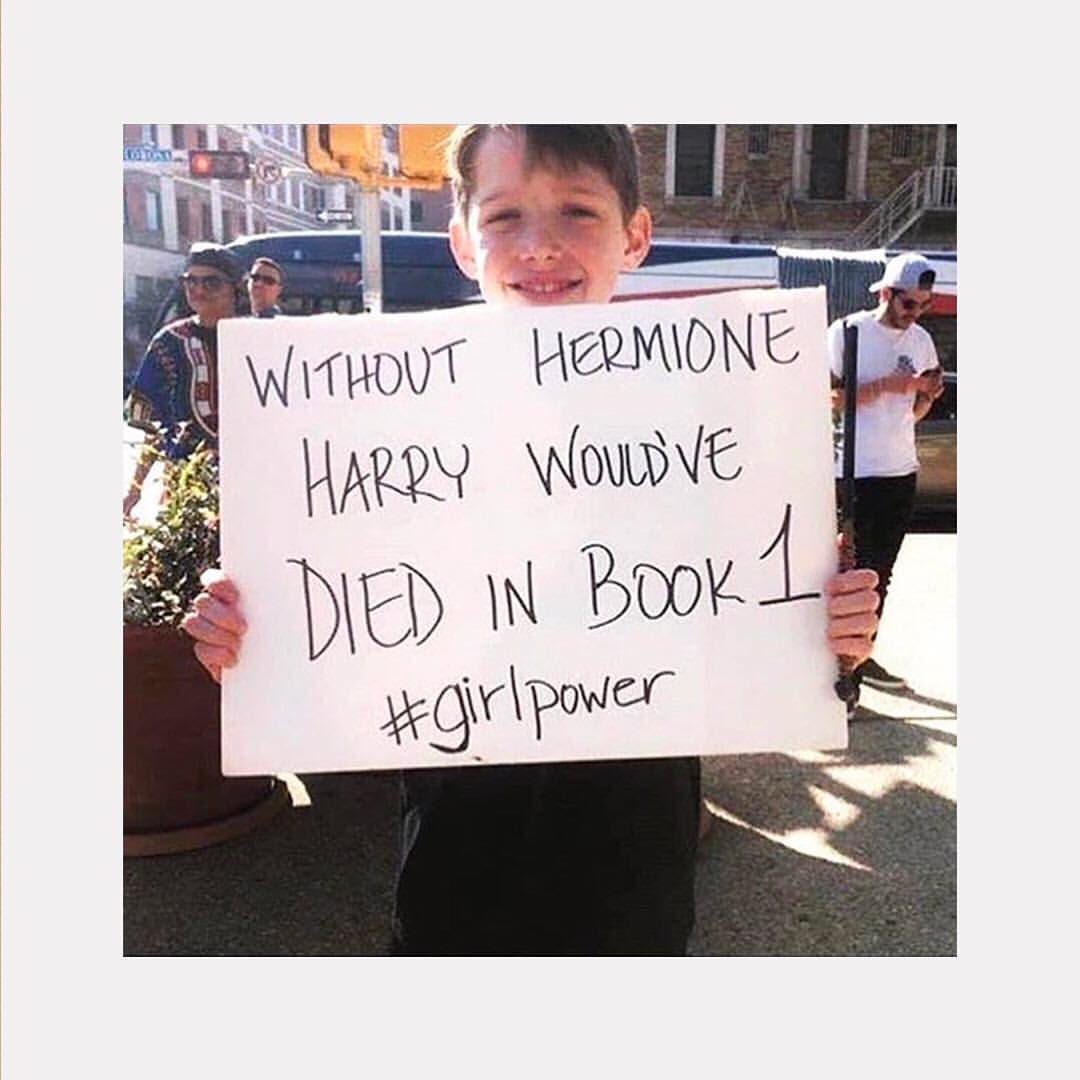 WITHOUT HERMIONE
HARRY WOULD'VE
DIED IN BOOK 1
#girlpower